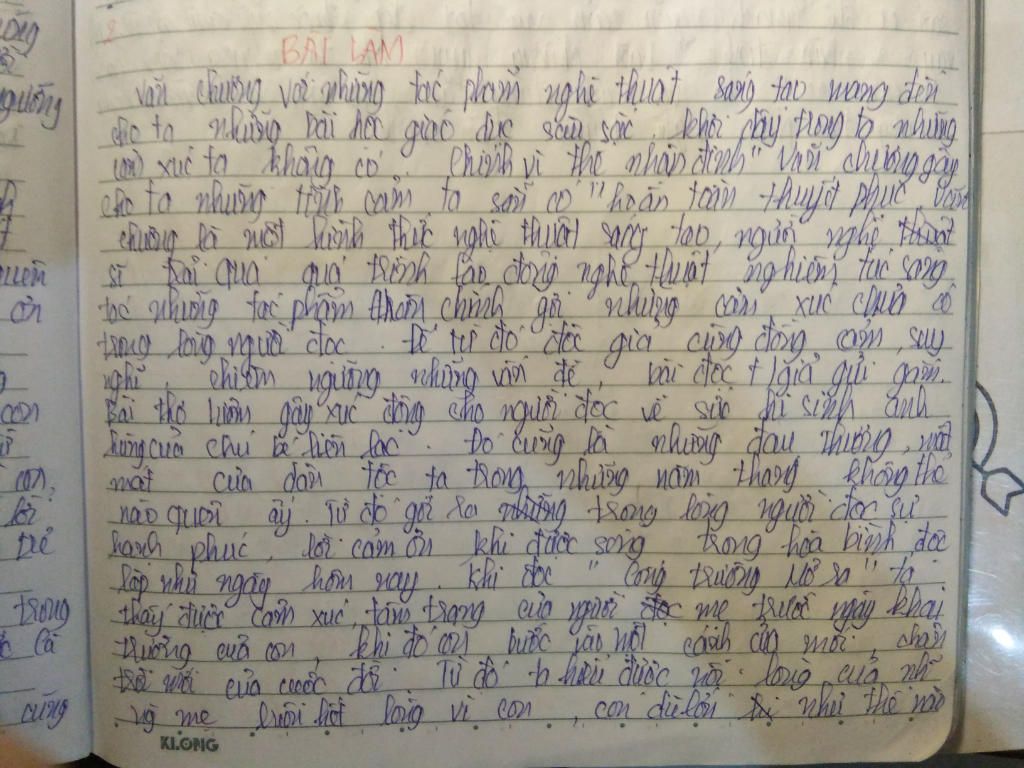 BÀI LÀM
Văn chương với những tác phẩm nghệ thuật sáng tạo mang đến
cho ta những bài học giáo dục sâu sắc. khơi dậy trong ta những
cảm xúc ta không có. Chính vì thế nhận định "Văn chương gây
cho ta những tình cảm ta sẵn có" hoàn toàn thuyết phục. Văn
chương là một hình thức nghệ thuật sáng tạo, người nghệ thuật
sĩ trải qua quá trình lao động nghệ thuật nghiêm túc sáng
tác những tác phẩm hoàn chỉnh gợi những cảm xúc chưa có
trong lòng người đọc. Để từ đó độc giả cùng đồng cảm, suy
nghĩ, chiêm ngưỡng những vấn đề, bài đọc t/giả gửi gắm.
Bài thơ luôn gây xúc động cho người đọc về sự hi sinh anh
hùng của chú bé liên lạc. Đó cũng là những đau thương, mất
mát của dân tộc ta trong những năm tháng không thể
nào quên ấy. Từ đó gợi ra những trong lòng người đọc sự
hạnh phúc, lời cảm ơn khi được sống trong hòa bình độc
lập như ngày hôm nay. khi đọc "Cổng trường mở ra" ta
thấy được cảm xúc, tâm trạng của người đọc mẹ trước ngày khai
trường của con, khi đó con bước vào một cánh cửa mới, chân
trời mới của cuộc đời. Từ đó ta hiểu được nỗi lòng của
mẹ luôn hết lòng vì con, con dù lớn như thế nào
KLONG
ường
trong
cũng